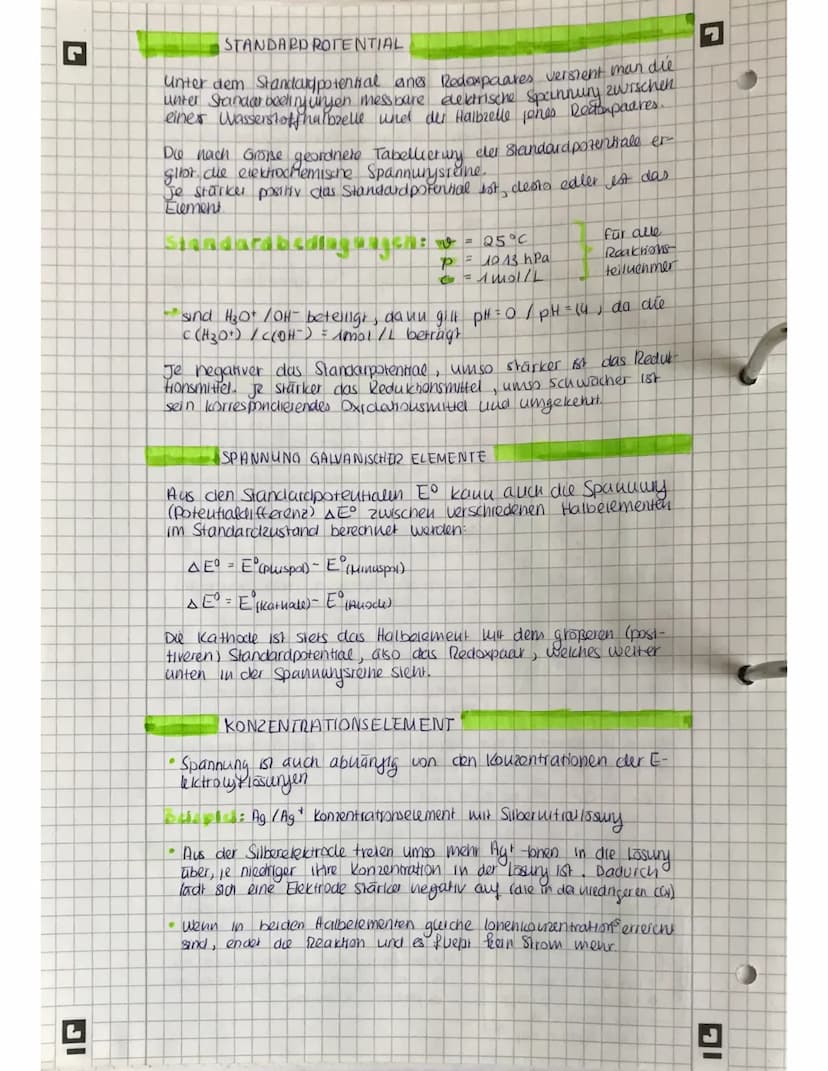 STANDARDPOTENTIAL
Unter dem Standardpotential eines Redoxpaares versteht man die
unter Standardbedingungen messbare elektrische Spannung zwischen
einer Wasserstoffhalbzelle und der Halbzelle jenes Redoxpaares.
Die nach Größe geordnete Tabellierung der Standardpotentiale er-
gibt die elektrochemische Spannungsreihe.
Je stärker positiv das Standardpotential ist, desto edler ist das
Element
Standardbedingungen: ϑ = 25°C
p = 1013 hPa
c = 1mol/L
für alle
Reaktions-
teilnehmer
→ sind H₃O⁺ / OH⁻ beteiligt, dann gilt pH = 0 / pH = 14, da die
c(H₃O⁺) / c(OH⁻) = 1mol/L beträgt
Je negativer das Standarpotential, umso stärker ist das Reduk-
tionsmittel. Je stärker das Reduktionsmittel, umso schwächer ist
sein korrespondierendes Oxidationsmittel und umgekehrt.
SPANNUNG GALVANISCHER ELEMENTE
Aus den Standardpotentialen E⁰ kann auch die Spannung
(Potentialdifferenz) ΔE⁰ zwischen verschiedenen Halbelementen
im Standardzustand berechnet werden:
ΔE⁰ = E⁰(Pluspol) - E⁰(Minuspol)
ΔE⁰ = E⁰(Kathode) - E⁰(Anode)
Die Kathode ist stets das Halbelement mit dem größeren (posi-
tiveren) Standardpotential, also das Redoxpaar, welches weiter
unten in der Spannungsreihe steht.
KONZENTRATIONSELEMENT
• Spannung ist auch abhängig von den Konzentrationen der E-
lektrolytlösungen
Beispiel: Ag/Ag⁺ Konzentrationselement mit Silbernitratlösung
• Aus der Silberelektrode treten umso mehr Ag⁺-Ionen in die Lösung
über, je niedriger ihre Konzentration in der Lösung ist. Dadurch
lädt sich eine Elektrode stärker negativ auf (die in der niedrigeren
• Wenn in beiden Halbelementen gleiche Ionenkonzentration erreicht
sind, endet die Reaktion und es fließt kein Strom mehr.